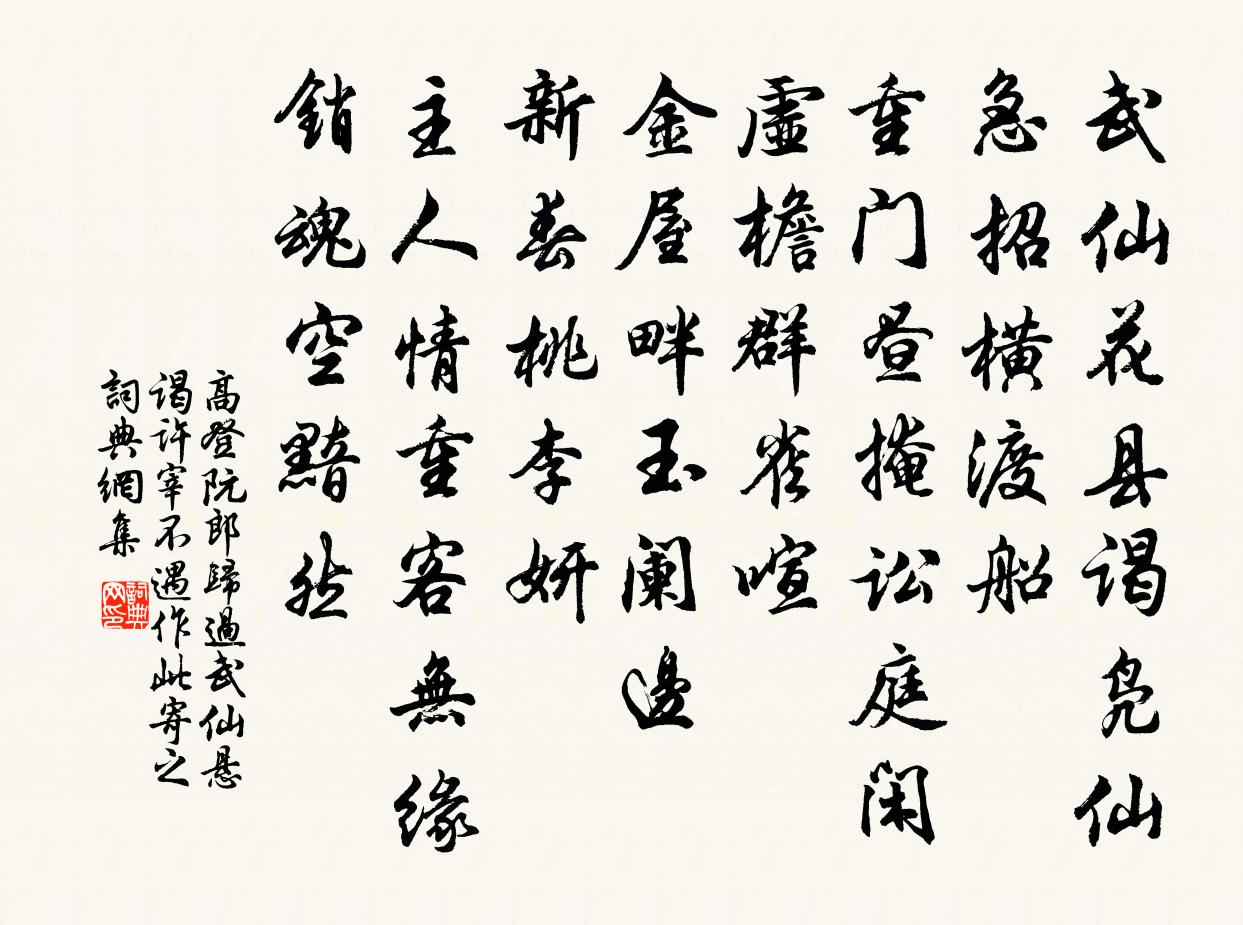 武仙花县谒凫仙
急招横渡船
重门昼掩讼庭闲
虚檐群雀喧
金屋畔玉阑邊
新春桃李妍
主人情重客無緣
銷魂空黯然
高登阮郎歸過武仙悬
谒许宰不遇作此寄之
詞典網集
詞典网印